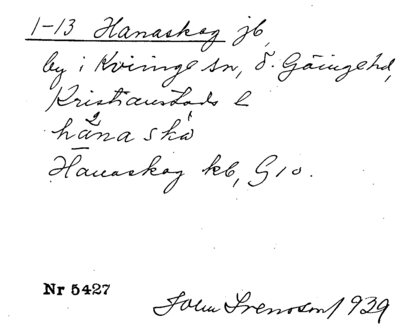 1-13 Hanaskog jb,
by i Kviinge sn, ö. Göinge hd,
Kristianstads l
hánaskò
Hanaskog kb, G10.
Nr 5427
John Svenson 1939